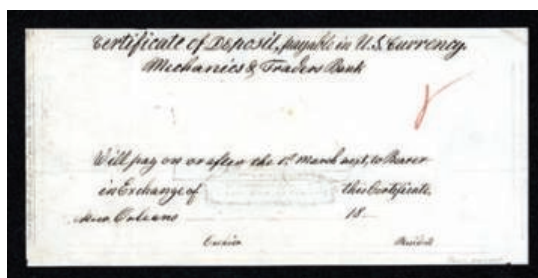 Certificate of Deposit, payable in U.S. Currency.
Mechanics & Traders Bank
Will pay on or after the 1st March next, to Bearer
in Exchange of this Certificate.
New Orleans 18
Cashier Presidt